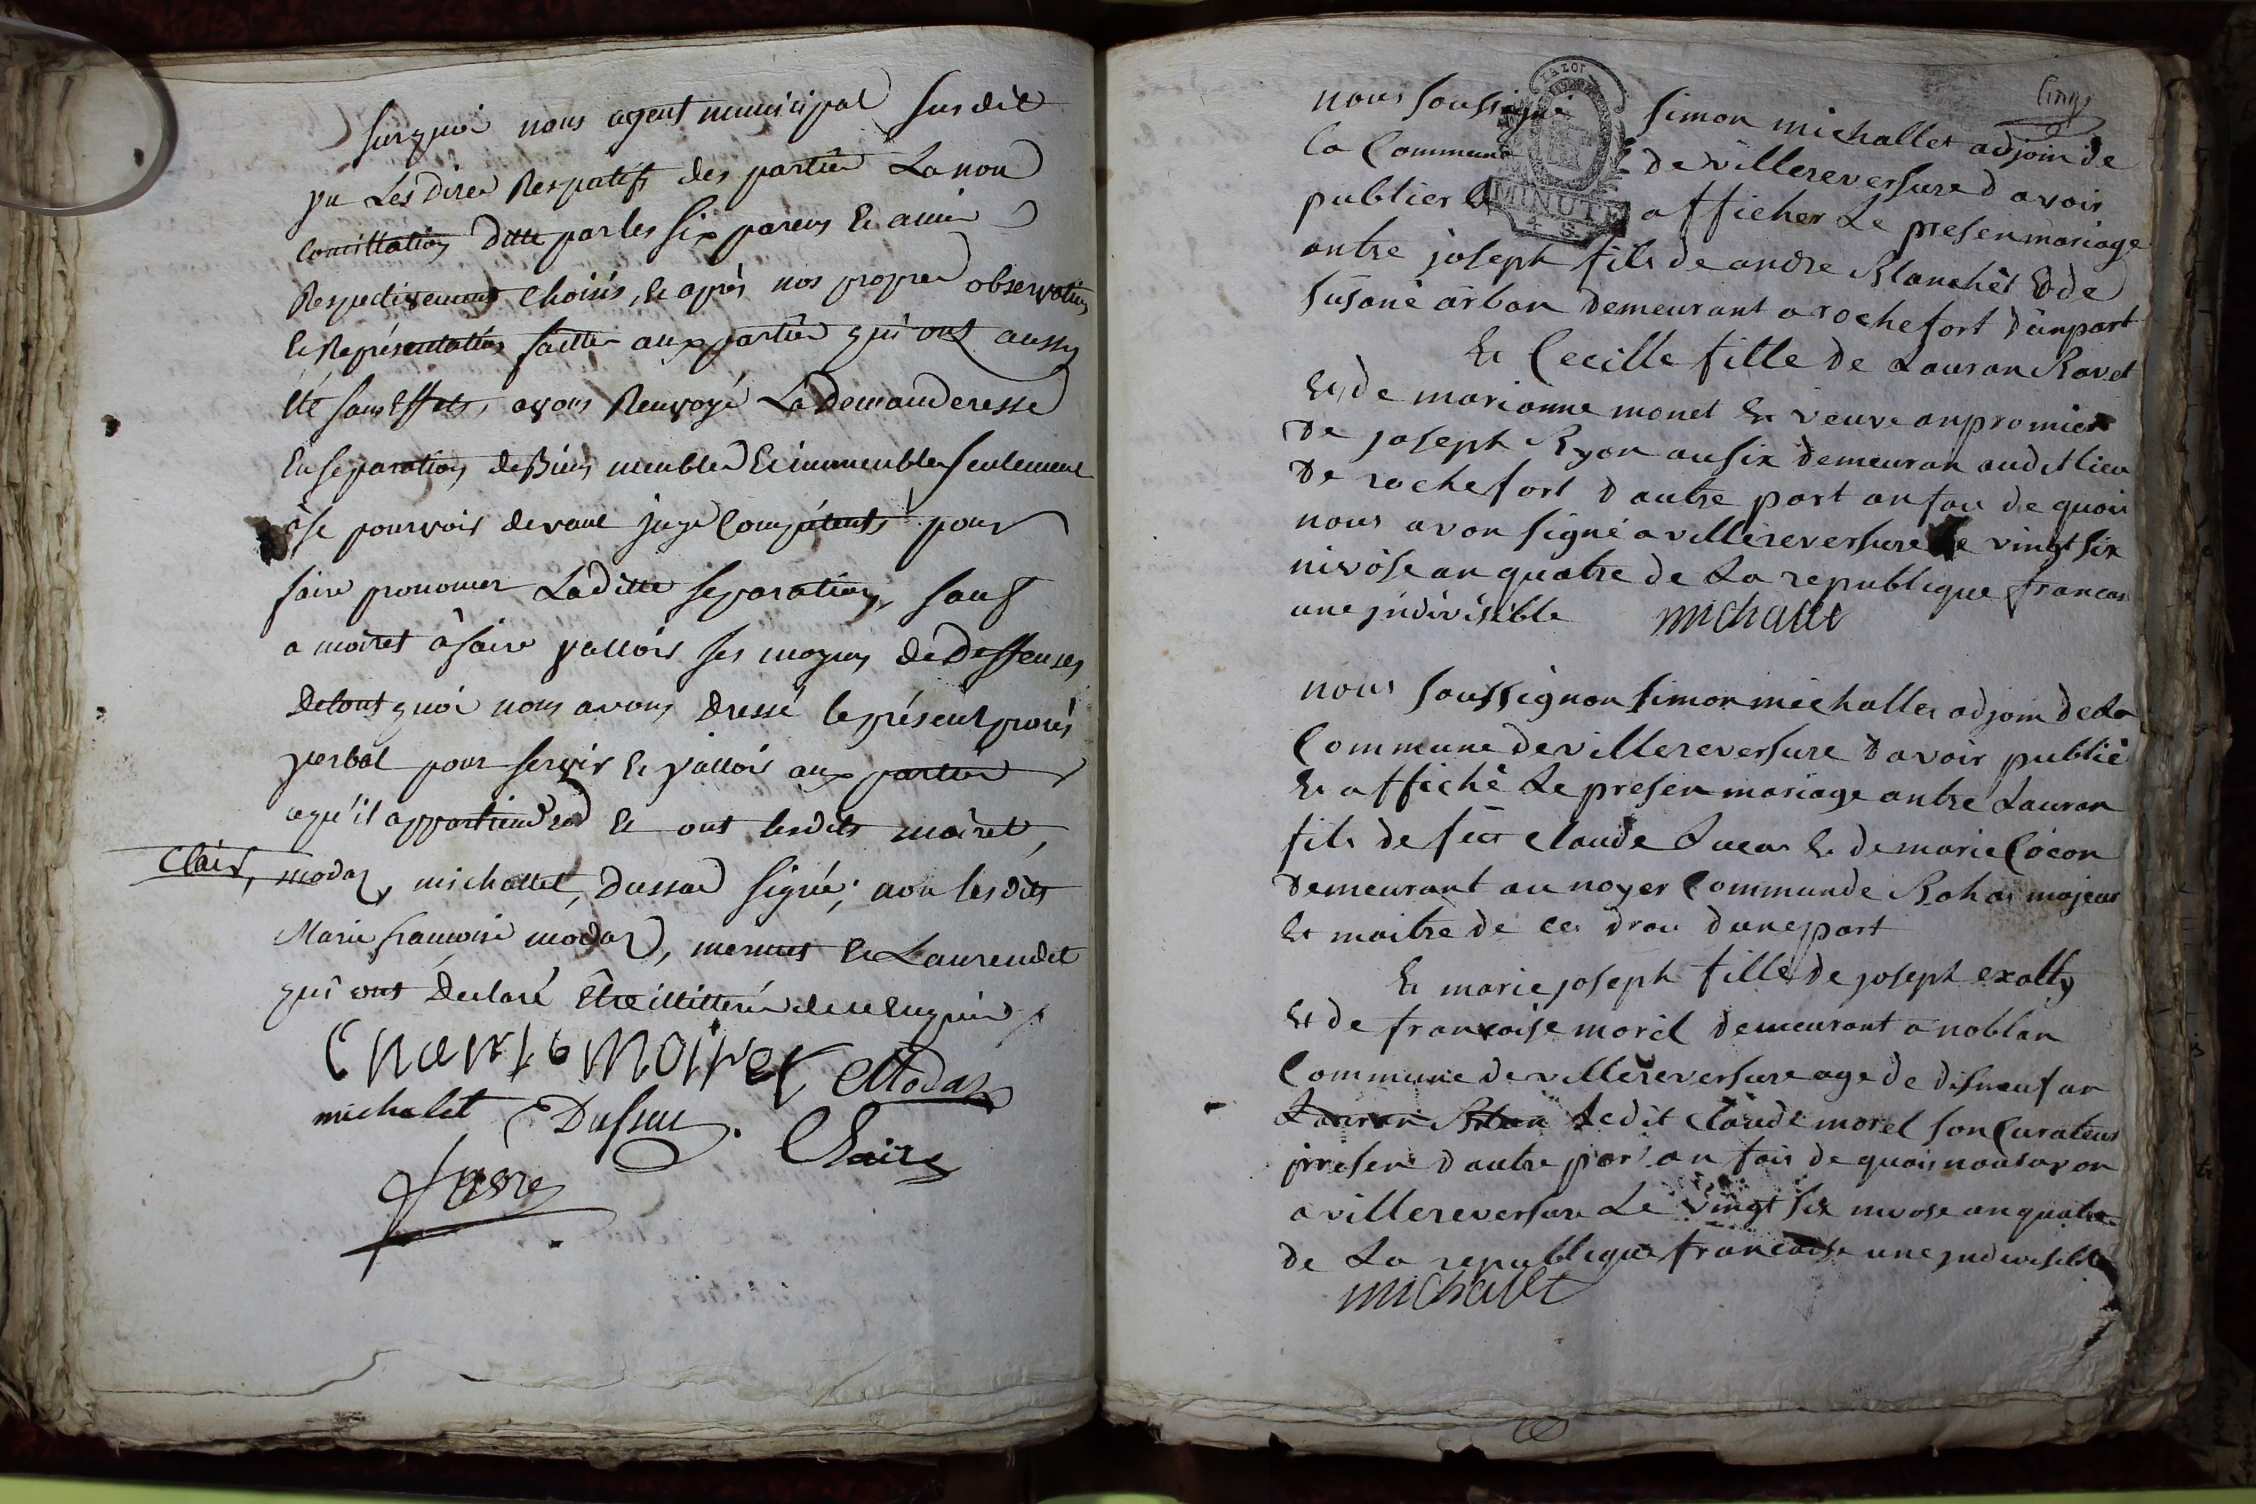 surquoi nous agent municipal susdit
vu Les dires Respectifs des parties La non
Concilliation ditte par les six parens Et amis
Respectivement choisis, Et après nos propres observations
Et Représentations faittes aux parties qui ont aussy
été sans Effets, avons Renvoyé La Demanderesse
En separation de Biens meubles Et immeubles seulement
à se pourvoir devant juge Compétents pour
faire prononcer Laditte separation, sauf
a moiret à faire valloir ses moyens de Deffenses,
De tout quoi nous avons Dressé le présent procès
verbal pour servir Et valloir aux parties
ce qu'il appartiendra Et ont lesdits moiret,
Clair, modaz, michallet, Dussuc signé; non lesdits
Marie françoise modaz, mermet Et Laurendet
qui ont Déclaré Etre illittérés de ce Enquis ./.
moiret Modaz
michalet Dussuc. Claire
favre
Cinq
nous soussigné simon michallet adjoin de
la Commune de villereversure d avoir
publier Et afficher Le presen mariage
antre joseph fils de andre Blanchêt Et de
susane àrban Demeurant a rochefort d'unpart
Et Cecille fille de Lauran Ravet
Et de marianne monet Et veuve anpromier
De joseph Ryon ausix demeuran audit lieu
De rochefort d autre part an foi de quoi
nous avon signé a villereversure Le vingt six
nivôse an quatre de La republique francois
une jndivisible michallet
nous soussignon simon michallet adjoin de La
Commune de villereversure d avoir publié
Et affiché Le presen mariage antre Lauran
fils de feu claude Lucas Et de marie Cocon
Demeurant au noyer Commune de Rohas majeur
Et maitre de ces droi d une part
Et marie joseph fille de joseph exalty
Et de francoise morel Demeurant a noblan
Commune de villereversure age de disneuf an
Lauran Ledit claude morel son Curateur
presen d autre part an fois de quois nous avon
a villereversure Le vingt six nivose an quatre
de La republique francaise une jndivisible
michallet
MINUTE